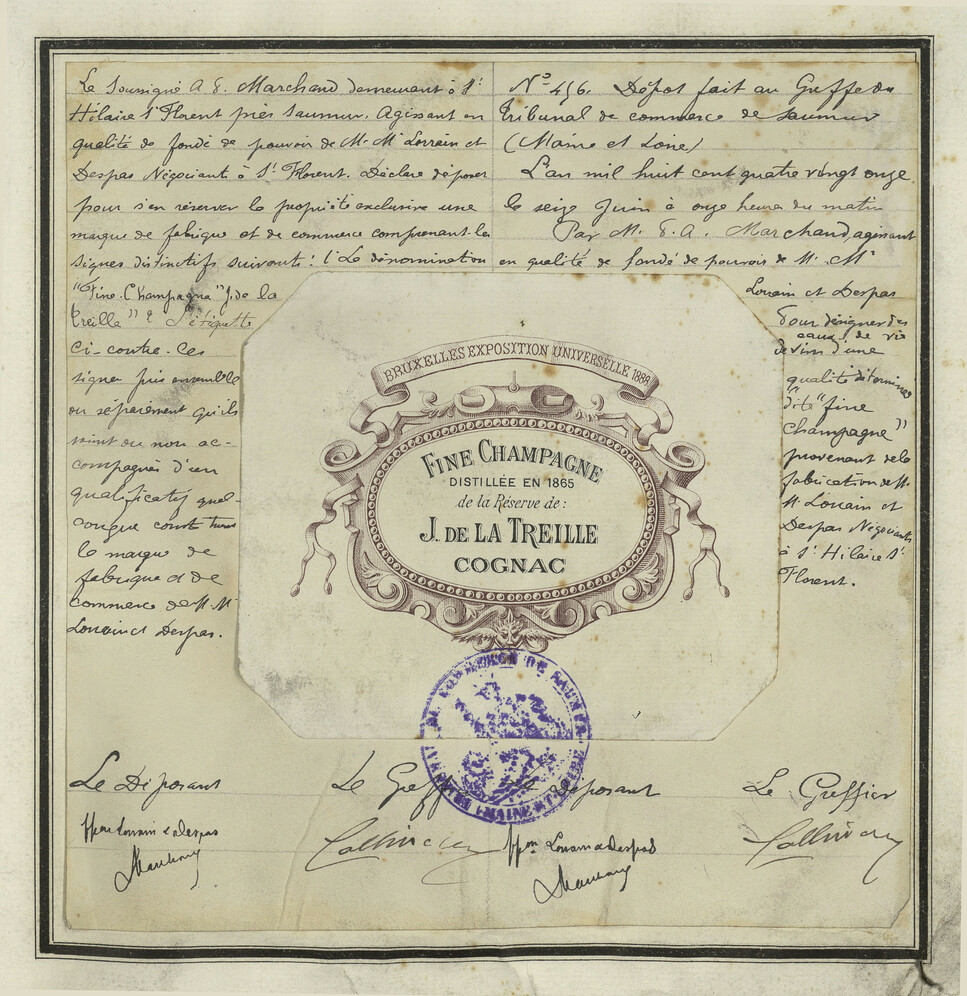 Le Soussigné A E. Marchand demeurant à St
Hilaire St Florent près Saumur, Agissant en
qualité de fondé de pouvoir de M. M. Lorrain et
Despas Négociants à St Florent. Déclare déposer
pour s'en réserver la propriété exclusive une
marque de fabrique et de commerce comprenant les
signes distinctifs suivants: 1° La dénomination
"Fine Champagne" J. de la
Treille" 2° L'étiquette
ci-contre. Ces
signes pris ensemble
ou séparément qu'ils
soient ou non ac-
compagnés d'un
qualificatif quel-
conque constituent
la marque de
fabrique et de
commerce de M. M.
Lorrain et Despas.
Le Déposant
ppon Lorrain & Despas
Marchand
Le Greffier
No 456. Dépôt fait au Greffe du
Tribunal de commerce de Saumur
(Maine et Loire)
L'an mil huit cent quatre vingt onze
le seize Juin à onze heures du matin
Par M. E. A. Marchand, agissant
en qualité de fondé de pouvoir de M. M.
Lorrain et Despas
Pour désigner des
eaux de vie
de vin d'une
qualité déterminée
dite "fine
Champagne"
provenant de la
fabrication de M.
M Lorrain et
Despas Négociants
à St Hilaire St
Florent.
BRUXELLES EXPOSITION UNIVERSELLE 1888
FINE CHAMPAGNE
DISTILLÉE EN 1865
de la Réserve de:
J. DE LA TREILLE
COGNAC
DE COMMERCE DE SAUMUR
MAINE-ET-LOIRE
Le Déposant
ppon Lorrain & Despas
Marchand
Le Greffier